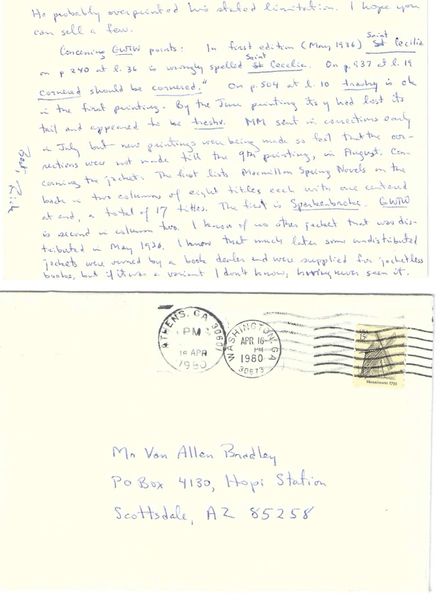 He probably overprinted his stated limitation. I hope you
can sell a few.
Concerning GWTW points: In first edition (May, 1936) Saint St Cecilia
on p 240 at l. 36 is wrongly spelled Saint St Cecelia. On p. 437 at l. 19
cornered should be cornered." On p. 504 at l. 10 trashy is ok
in the first printing. By the June printing its y had lost its
tail and appeared to be trashv. MM sent in corrections early
in July but new printings were being made so fast that the cor-
rections were not made till the 9th printing, in August. Con-
cerning the jacket: The first lists Macmillan Spring Novels on the
back in two columns of eight titles each with one centered
at end, a total of 17 titles. The first is Sparkenbroke. GWTW
is second in column two. I know of no other jacket that was dis-
tributed in May 1936. I know that much later some undistributed
jackets were owned by a book dealer and were supplied for jacketless
books, but if it was a variant I don't know, having never seen it.
Best,
ATHENS, GA 30601
PM
16 APR
1980
WASHINGTON, GA
APR 16
PM
1980
30673
Mr Van Allen Bradley
PO Box 4130, Hopi Station
Scottsdale, AZ 85258